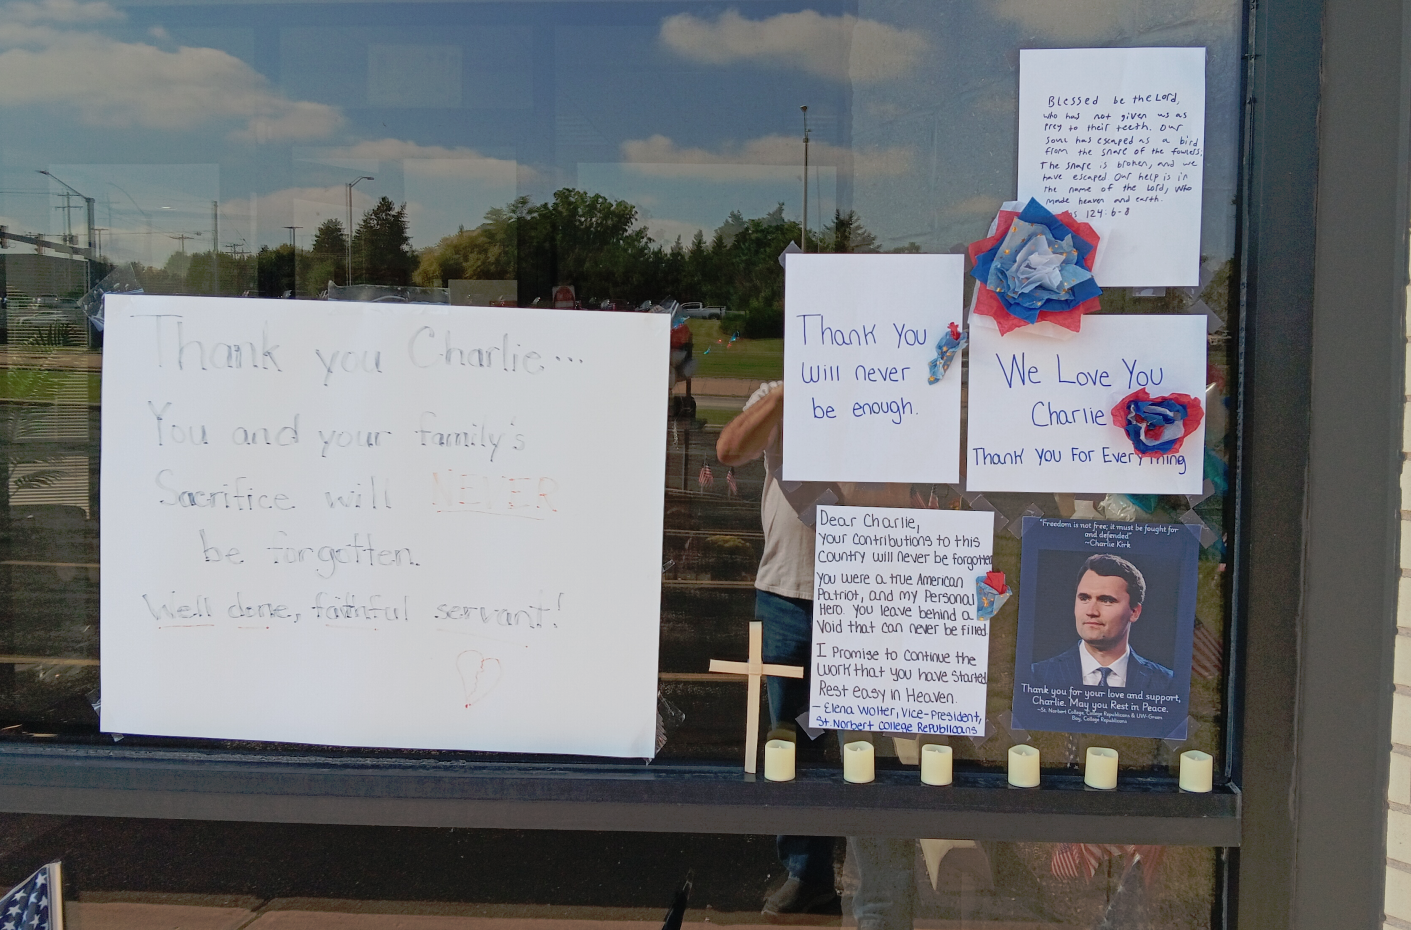 Thank you Charlie...
You and your family's
Sacrifice will NEVER
be forgotten.
Well done, faithful servant!
Blessed be the Lord,
who has not given us as
prey to their teeth. Our
soul has escaped as a bird
from the snare of the fowlers;
The snare is broken, and we
have escaped Our help is in
the name of the Lord, who
made heaven and earth.
124:6-8
Thank You
Will never
be enough.
We Love You
Charlie
Thank You For Everything
Dear Charlie,
Your contributions to this
Country will never be forgotten
You were a true American
Patriot, and my Personal
Hero. You leave behind a
Void that can never be filled
I Promise to continue the
Work that you have started
Rest easy in Heaven.
- Elena Wolter, Vice-President,
St. Norbert College Republicans
"Freedom is not free; it must be fought for
and defended"
~Charlie Kirk
Thank you for your love and support,
Charlie. May you Rest in Peace.
~St. Norbert College, College Republicans & UW-Green
Bay, College Republicans